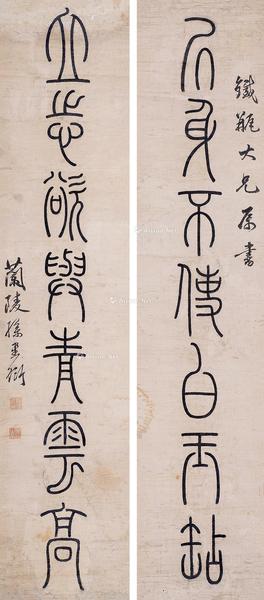 鐵瓶大兄屬書
身不使白玉玷
立志欲與青雲高
蘭陵孫星衍